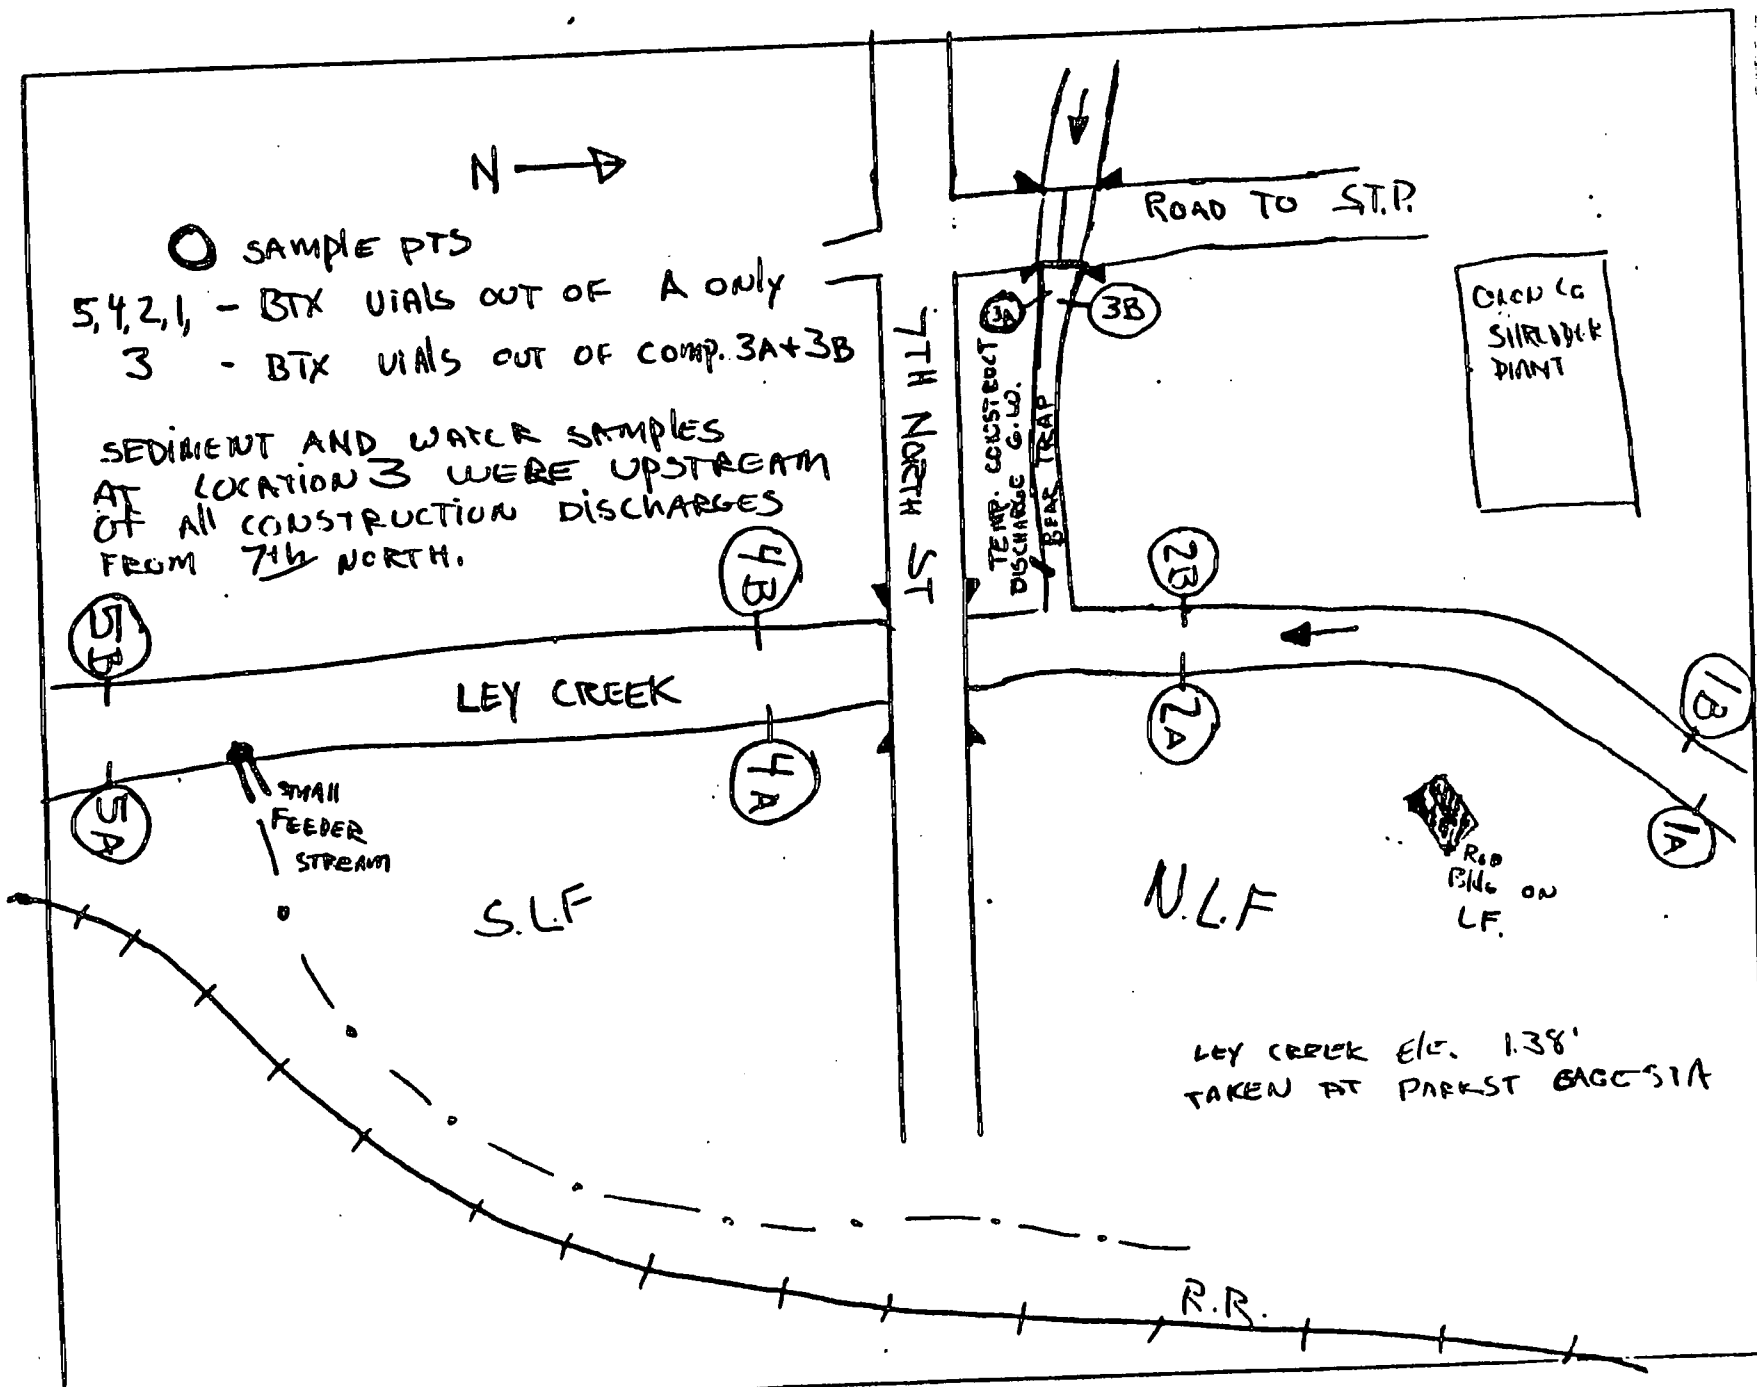 N
SAMPLE PTS
5,4,2,1, - BTX VIALS OUT OF A ONLY
3 - BTX VIALS OUT OF COMP. 3A+3B
SEDIMENT AND WATER SAMPLES
AT LOCATION 3 WERE UPSTREAM
OF All CONSTRUCTION DISCHARGES
FROM 7th NORTH.
ROAD TO S.T.P.
3A
3B
SHREDDER
PLANT
7TH NORTH ST
TEMP. CONSTRUCT
DISCHARGE G.W.
BEAR TRAP
5B
4B
2B
1B
LEY CREEK
5A
4A
2A
1A
SMALL
FEEDER
STREAM
S.L.F
N.L.F
Bldg ON
L.F.
LEY CREEK ElE. 1.38'
TAKEN AT PARK ST GAGE STA
R.R.